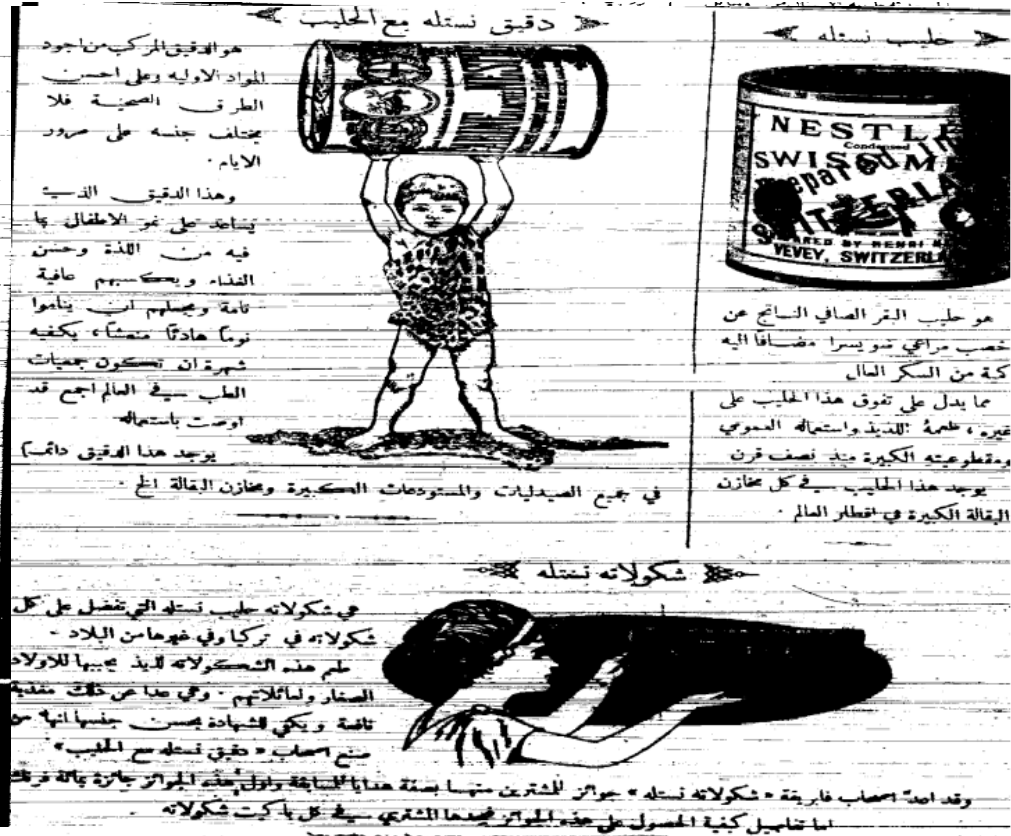 حليب نستله
NESTLE
Condensed
SWISS M
Prepared in
SWITZERLA
RED BY HENRI N
VEVEY, SWITZERLA
هو حليب البقر الصافي الناتج عن
خصب مراعي سويسرا مضافا اليه
كمية من السكر العال
مما يدل على تفوق هذا الحليب على
غيره ، طعمهُ اللذيذ واستعماله العمومي
ومقطوعيته الكبيرة منذ نصف قرن
يوجد هذا الحليب في كل مخازن
البقالة الكبيرة في اقطار العالم ·
دقيق نستله مع الحليب
هو الدقيق المركب من اجود
المواد الاوليه وعلى احسن
الطرق الصحية فلا
يختلف جنسه على مرور
الايام ·
وهذا الدقيق الذي
يساعد على نمو الاطفال بما
فيه من اللذة وحسن
الغذاء ويكسبهم عافية
تامة ويجعلهم ان يناموا
نوماً هادئاً منعشاً ، يكفيه
شهرة ان تكون جمعيات
الطب في العالم اجمع قد
اوصت باستعماله
يوجد هذا الدقيق دائماً
في جميع الصيدليات والمستودعات الكبيرة ومخازن البقالة الخ ·
شكولاته نستله
هي شكولاته حليب نستله التي تفضل على كل
شكولاته في تركيا وفي غيرها من البلاد -
طعم هذه الشكولاته لذيذ يحببها للاولاد
الصغار ولعائلاتهم · وهي عدا عن ذلك مغذية
نافعة ويكفي للشهادة بحسن جنسها انها من
صنع اصحاب « دقيق نستله مع الحليب »
وقد اعدّ اصحاب فابريقة « شكولاته نستله » جوائز للمشترين منها بصفة هدايا للمسابقة واول هذه الجوائز جائزة بمائة فرنك
اما تفاصيل كيفية الحصول على هذه الجوائز فيجدها المشتري في كل باكيت شكولاته ·